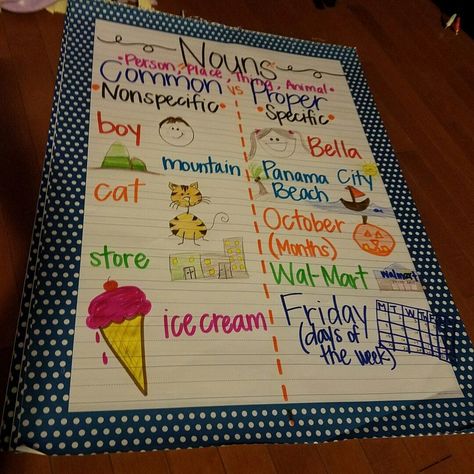 Nouns
• Person, Place, Thing, Animal •
Common vs Proper
• Nonspecific • • Specific •
boy
Bella
mountain
Panama City
Beach
cat
October
(Months)
store
Wal-Mart
Walmart
ice cream
Friday
(days of
the week)
M T W Th F